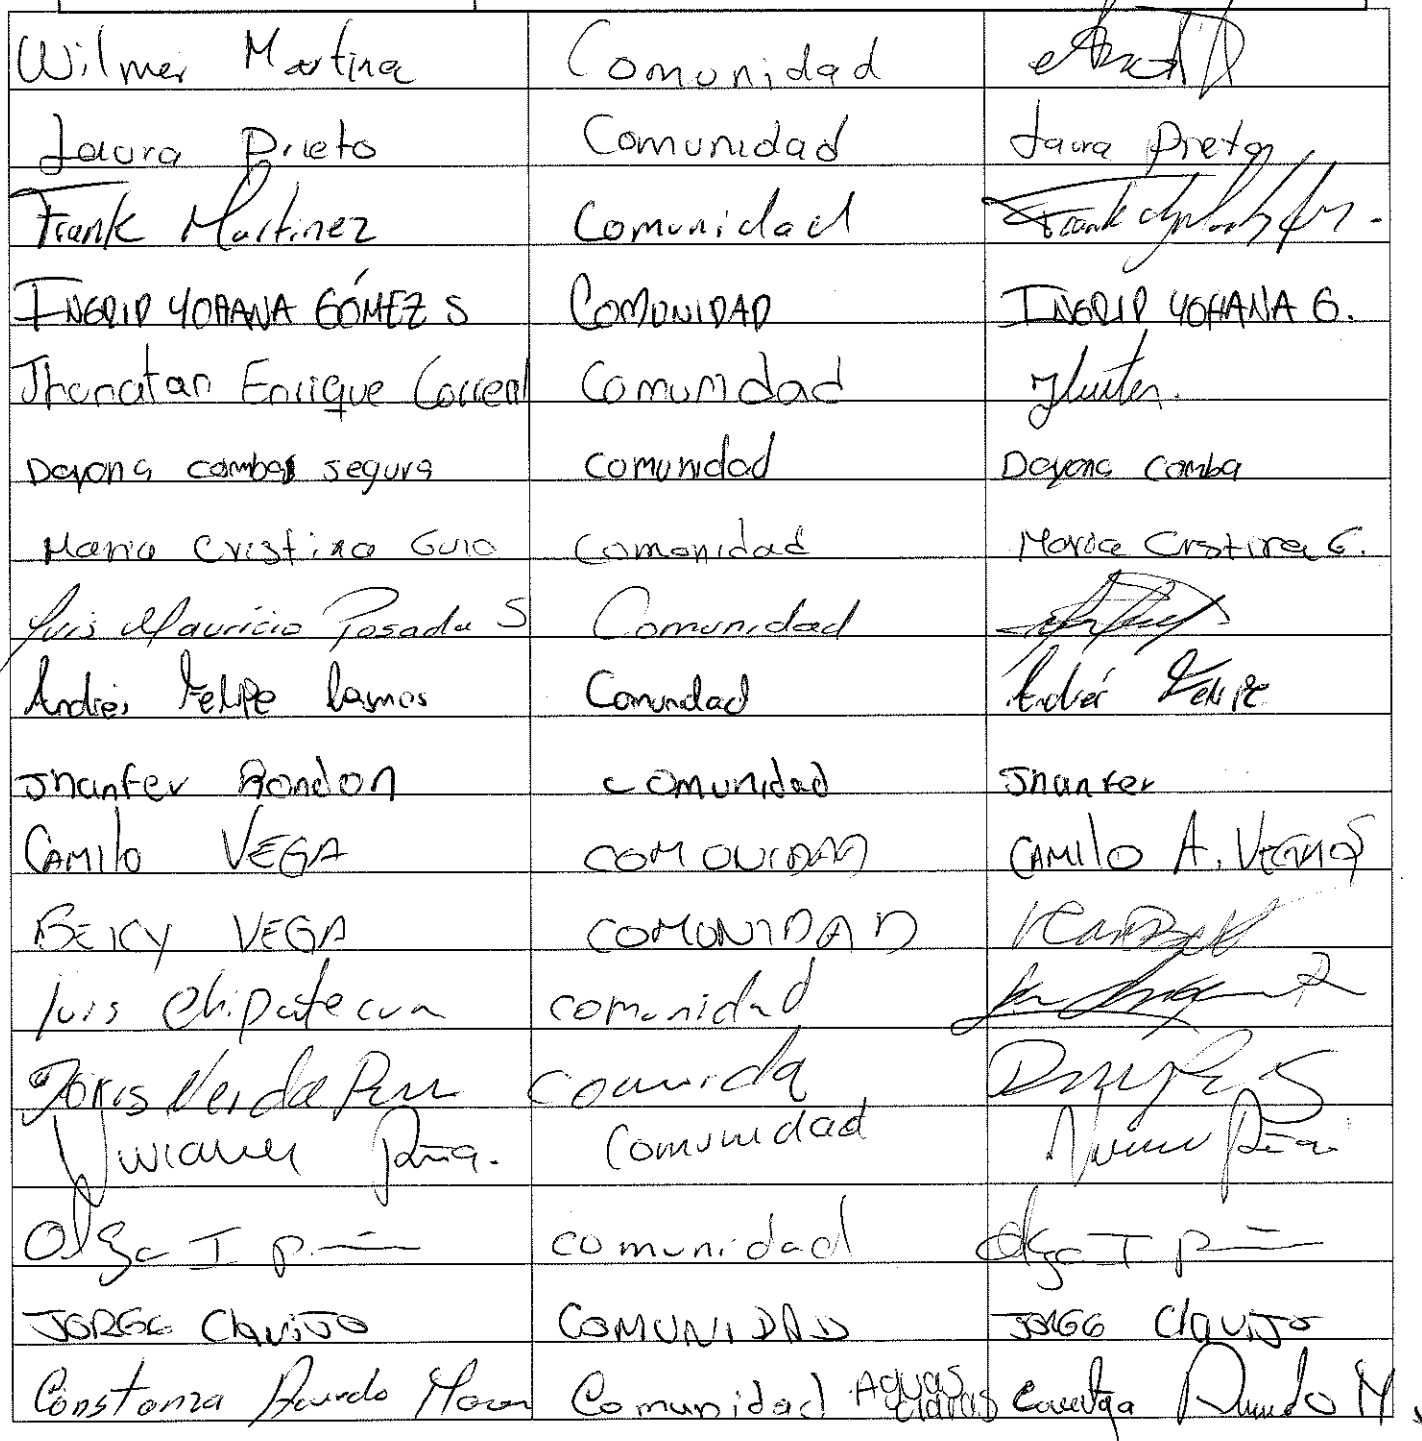 Wilmer Martinez Comunidad
Laura Prieto Comunidad Laura Prieto
Frank Martinez Comunidad Frank
INGRID YOHANA GÓMEZ S COMUNIDAD INGRID YOHANA G.
Jhonatan Enrique Correal Comunidad
Dayana comba segura comunidad Dayana comba
Maria Cristina Guio Comonidad Maria Cristina G.
Luis Mauricio Posada S Comunidad
Andrés Felipe Ramos Comunidad Andrés Felipe
Jhanfer Rondon comunidad Jhanfer
CAMIlO VEGA COMOUIDAD CAMIlO A.
BEICY VEGA COMONIDAD
luis chipatecua comunidad
Doris comunida
Viviana Peña. Comunidad Peña
Olga I comunidad Olga I
JORGE ClaviJo COMUNIDAD JORGE ClaviJo
Constanza Comunidad AGUAS claras M.